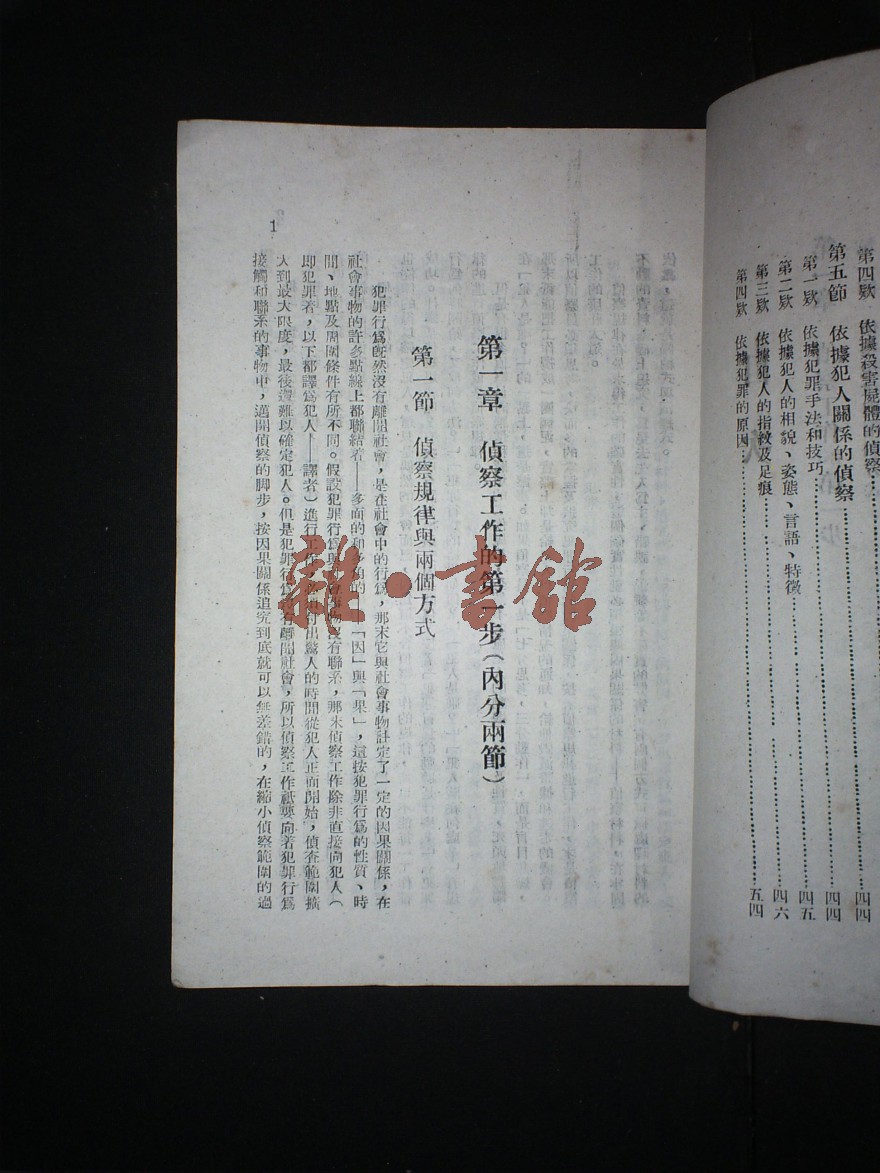 第四欵 依據殺害屍體的偵察……四四
第五節 依據犯人關係的偵察……四四
第一欵 依據犯罪手法和技巧……四五
第二欵 依據犯人的相貌、姿態、言語、特徵……四六
第三欵 依據犯人的指紋及足痕……
第四欵 依據犯罪的原因……五四
第一章 偵察工作的第一步(內分兩節)
第一節 偵察規律與兩個方式
犯罪行爲既然沒有離開社會,是在社會中的行爲,那末它與社會事物註定了一定的因果關係,在
社會事物的許多點線上都聯結着——多面的和多角的——「因」與「果」,這按犯罪行爲的性質、時
間、地點及周圍條件有所不同。假設犯罪行爲與社會事物沒有聯系,那末偵察工作除非直接向犯人(
即犯罪者,以下都譯爲犯人——譯者)進行工作,必須付出驚人的時間從犯人正面開始,偵查範圍擴
大到最大限度,最後還難以確定犯人。但是犯罪行爲沒有離開社會,所以偵察工作祇要向着犯罪行爲
接觸和聯系的事物中,邁開偵察的脚步,按因果關係追究到底就可以無差錯的,在縮小偵察範圍的過
1
雜·書館